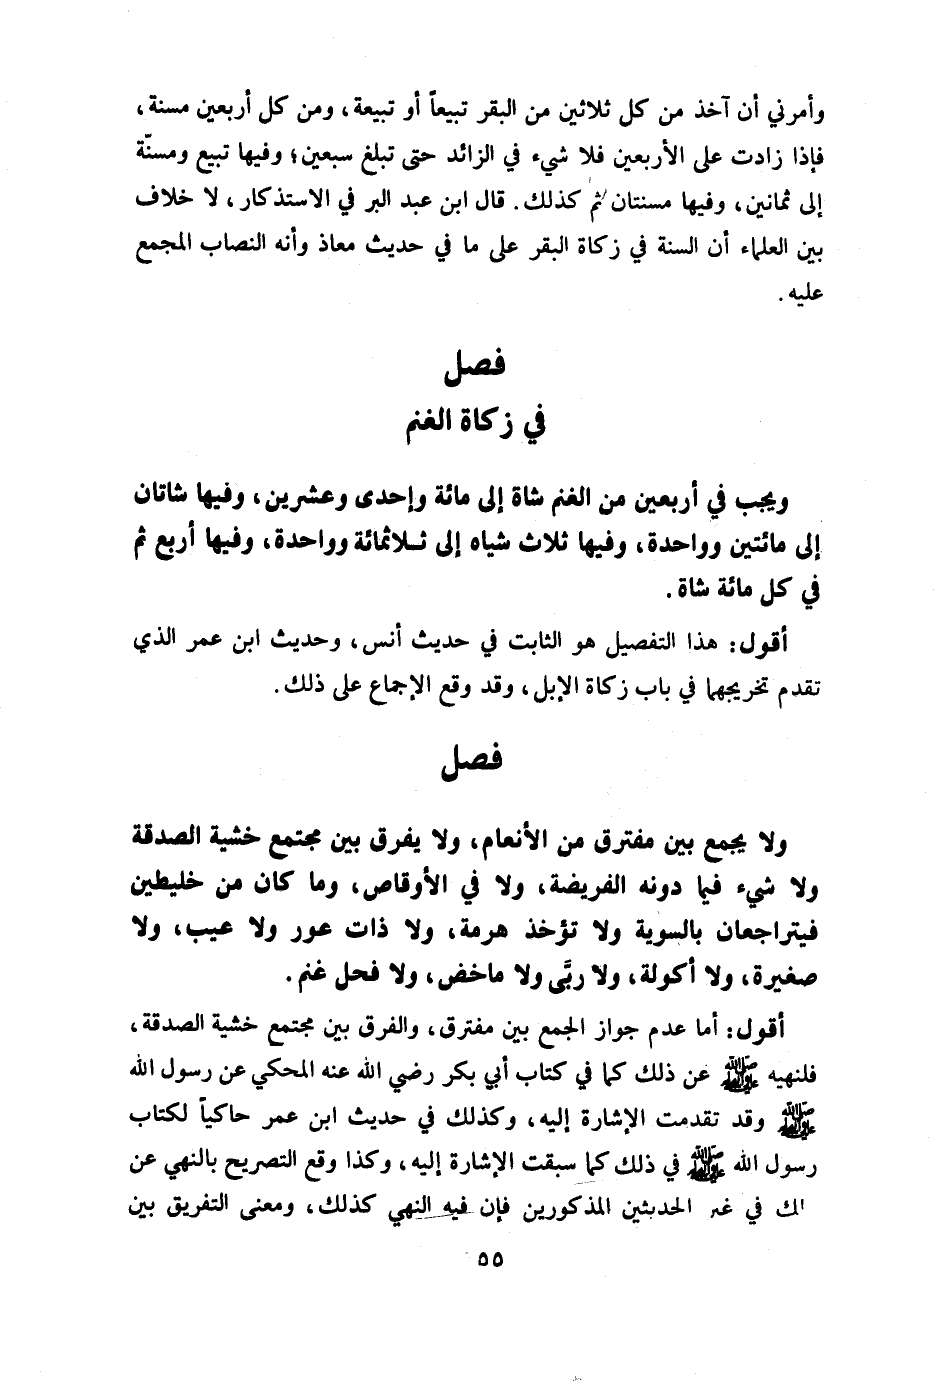 وأمرني أن آخذ من كل ثلاثين من البقر تبيعاً أو تبيعة، ومن كل أربعين مسنة،
فإذا زادت على الأربعين فلا شيء في الزائد حتى تبلغ سبعين؛ وفيها تبيع ومسنّة
إلى ثمانين، وفيها مسنتان ثم كذلك. قال ابن عبد البر في الاستذكار، لا خلاف
بين العلماء أن السنة في زكاة البقر على ما في حديث معاذ وأنه النصاب المجمع
عليه.
فصل
في زكاة الغنم
ويجب في أربعين من الغنم شاة إلى مائة وإحدى وعشرين، وفيها شاتان
إلى مائتين وواحدة، وفيها ثلاث شياه إلى ثلاثمائة وواحدة، وفيها أربع ثم
في كل مائة شاة.
أقول: هذا التفصيل هو الثابت في حديث أنس، وحديث ابن عمر الذي
تقدم تخريجهما في باب زكاة الإبل، وقد وقع الإجماع على ذلك.
فصل
ولا يجمع بين مفترق من الأنعام، ولا يفرق بين مجتمع خشية الصدقة
ولا شيء فيما دونه الفريضة، ولا في الأوقاص، وما كان من خليطين
فيتراجعان بالسوية ولا تؤخذ هرمة، ولا ذات عور ولا عيب، ولا
صغيرة، ولا أكولة، ولا ربَّى ولا ماخض، ولا فحل غنم.
أقول: أما عدم جواز الجمع بين مفترق، والفرق بين مجتمع خشية الصدقة،
فلنهيه ﷺ عن ذلك كما في كتاب أبي بكر رضي الله عنه المحكي عن رسول الله
ﷺ وقد تقدمت الإشارة إليه، وكذلك في حديث ابن عمر حاكياً لكتاب
رسول الله ﷺ في ذلك كما سبقت الإشارة إليه، وكذا وقع التصريح بالنهي عن
في غير الحديثين المذكورين فإن فيه النهي كذلك، ومعنى التفريق بين
٥٥